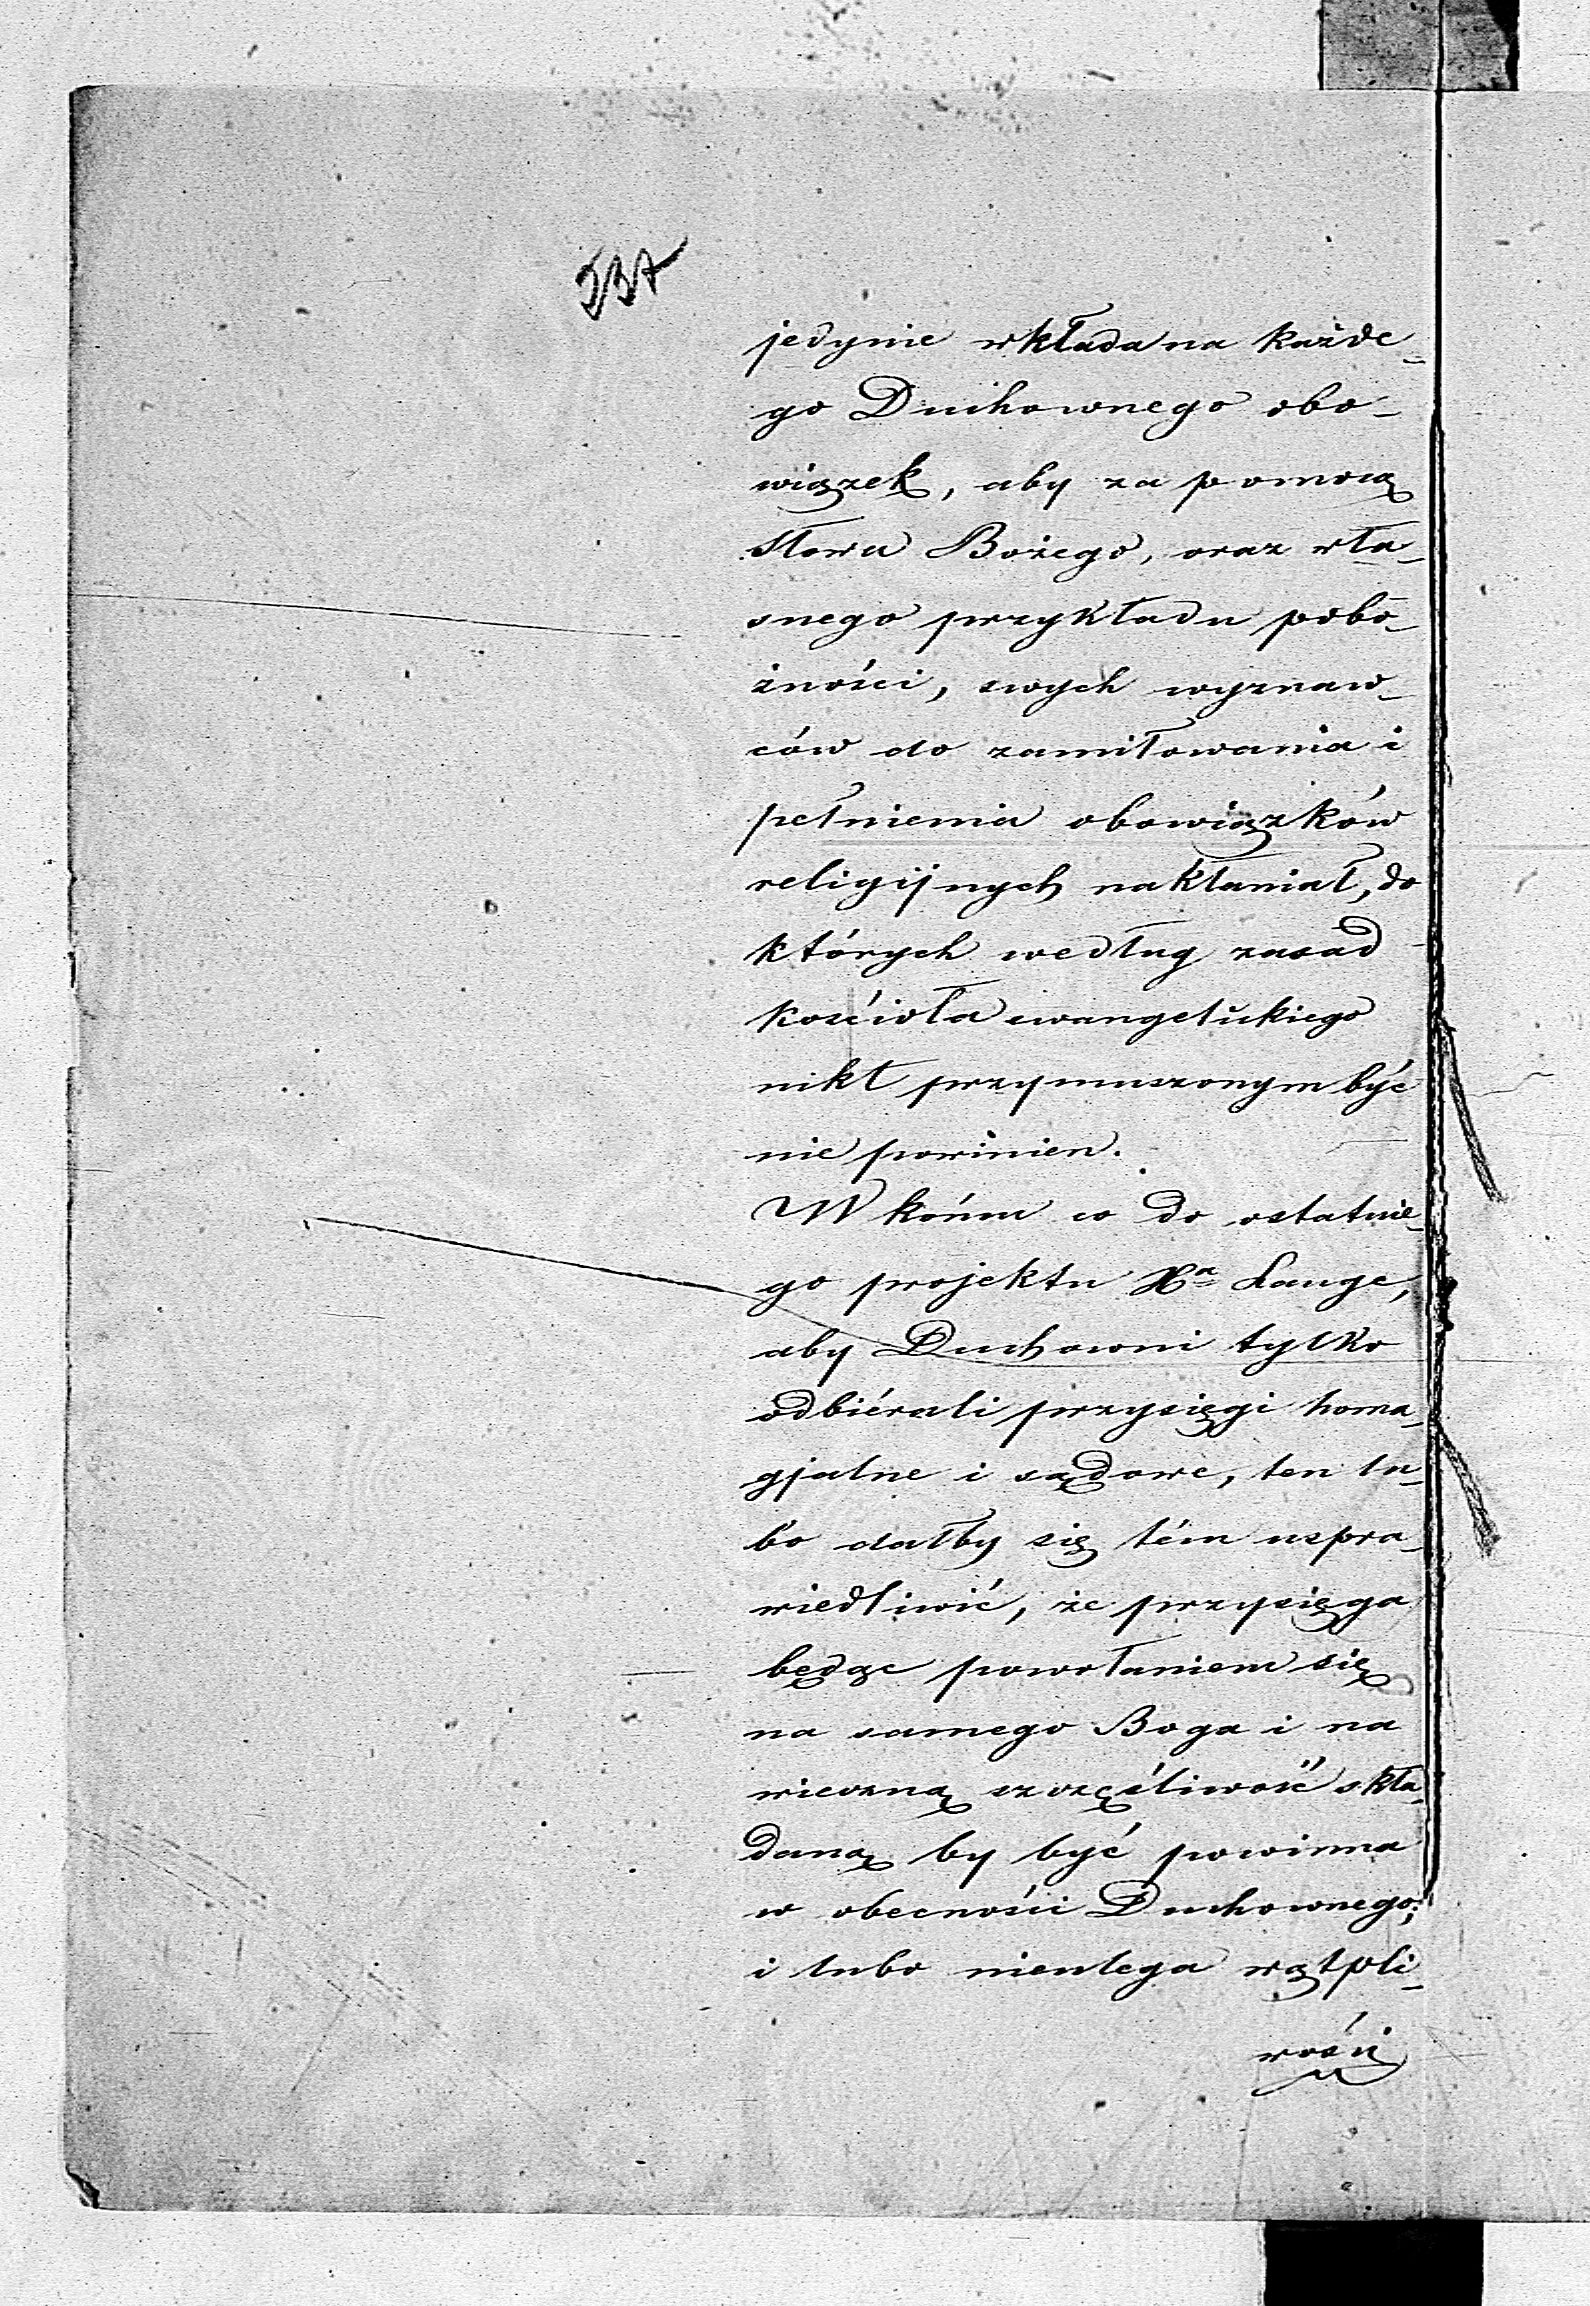 537
jedynie wkłada na każde-
go Duchownego obo-
wiązek, aby za pomocą
Słowa Bożego, oraz wła-
snego przykładu pobo-
żności, swych wyznaw-
ców do zamiłowania i
pełnienia obowiązków
religijnych nakłaniał, do
których według zasad
kościoła ewangelickiego
nikt przymuszonym być
nie powinien.
W końcu co do ostatnie-
go projektu Xa Lange,
aby Duchowni tylko
odbiérali przysięgi homa-
gjalne i sądowe, ten lu-
bo dałby się tém uspra-
wiedliwić, że przysięga
będąc powołaniem się
na samego Boga i na
wieczną szczęśliwość skła-
daną by być powinna
w obecności Duchownego;
i lubo nieulega wątpli-
wości